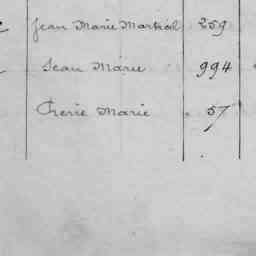 Jean Marie Martial 259
Jean Marie 994
Pierre Marie 57